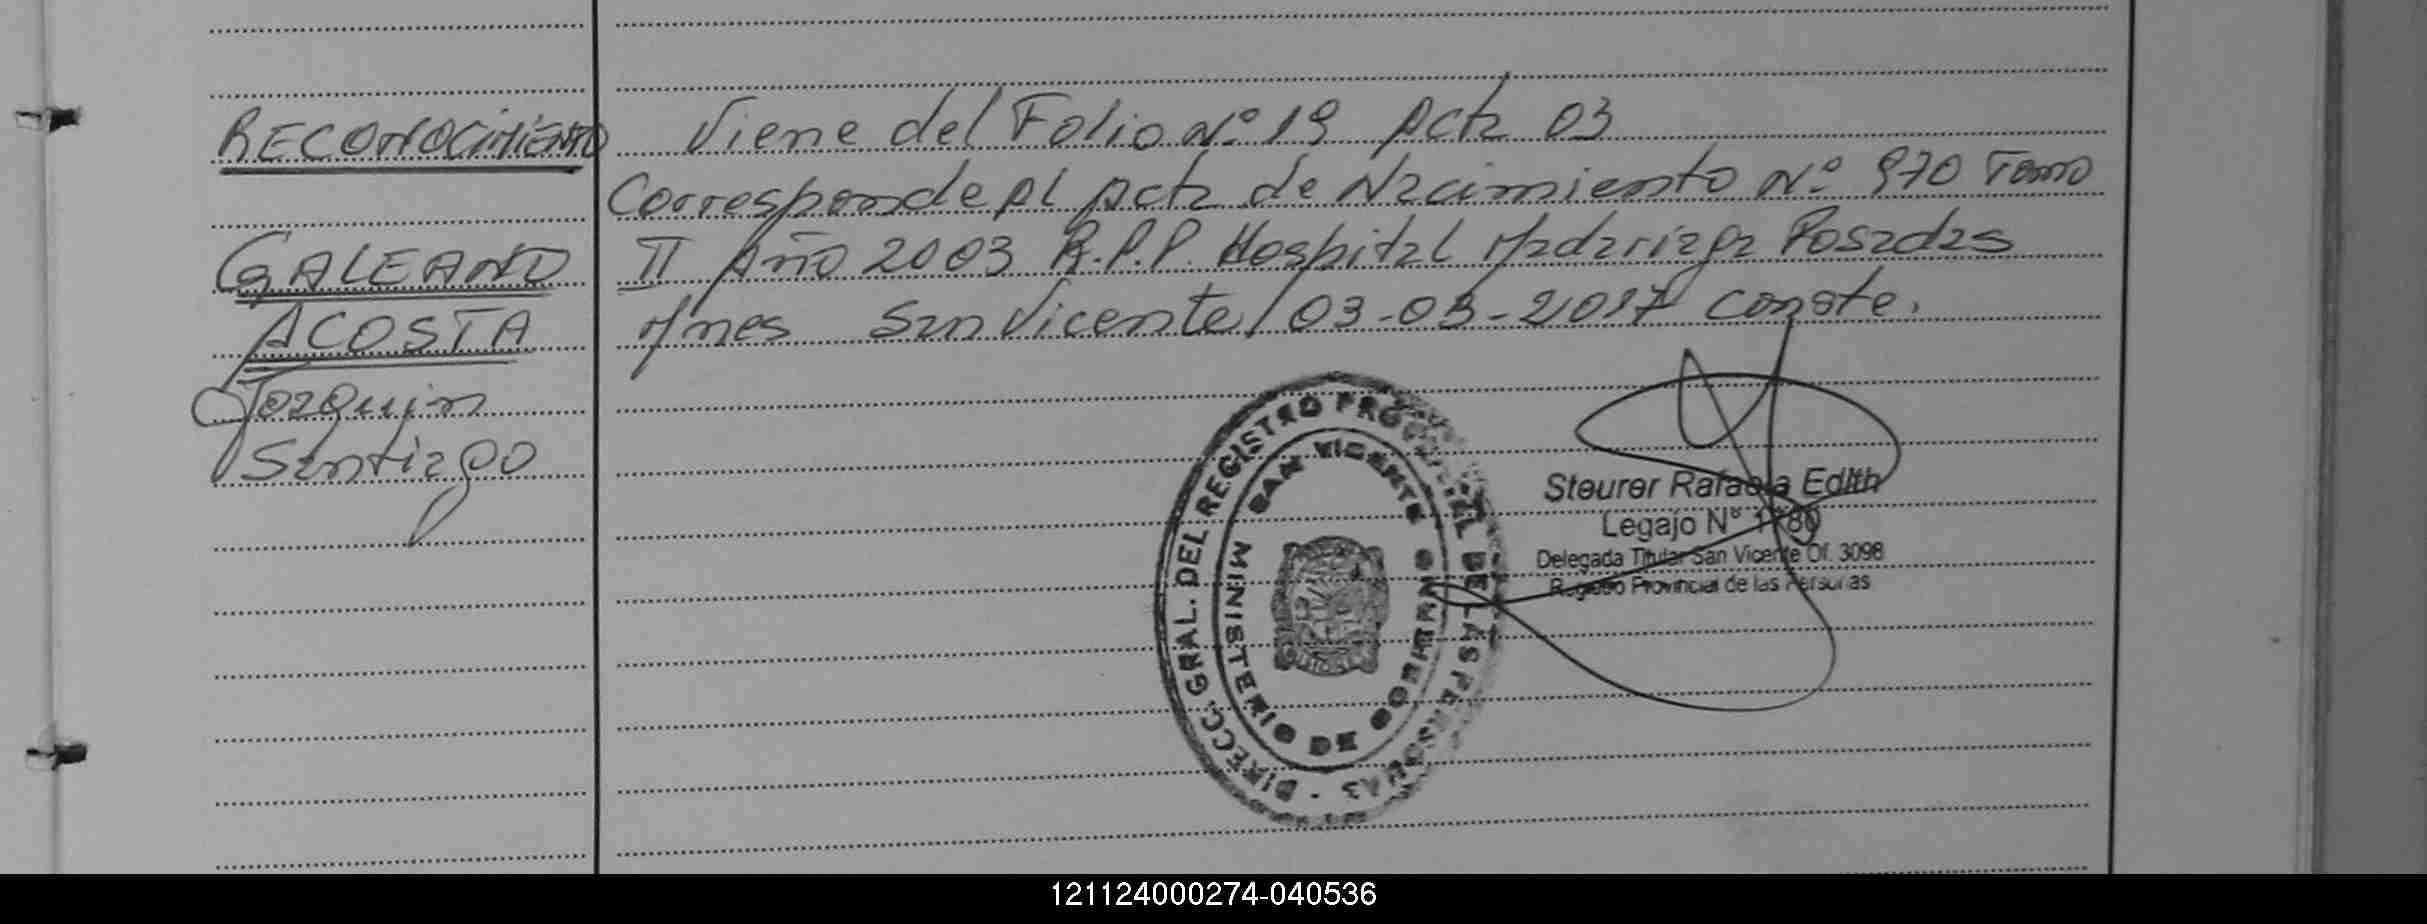 RECONOCIMIENTO
GALEANO
ACOSTA
Joaquin
Santiago
Viene del Folio Nº 19 Acta 03
Corresponde Al Acta de Nacimiento Nº 970 Tomo
II Año 2003 R.P.P. Hospital Madariaga Posadas
Mnes San Vicente, 03-03-2017 Conste.
DIRECC. GRAL. DEL REGISTRO PROVINCIAL DE LAS PERSONAS -
MINISTERIO DE GOBIERNO
SAN VICENTE
Steurer Rafaela Edith
Legajo Nº
Delegada Titular San Vicente Of. 3098
Registro Provincial de las Personas
121124000274-040536